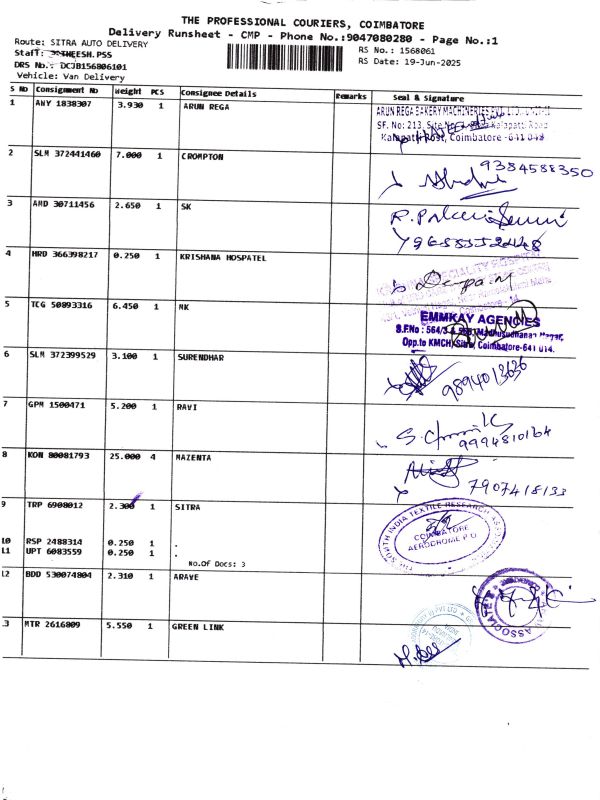 THE PROFESSIONAL COURIERS, COIMBATORE
Delivery Runsheet - CMP - Phone No.:9047080280 - Page No.:1
Route: SITRA AUTO DELIVERY
RS No.: 1568061
Staff: THEESH.PSS
RS Date: 19-Jun-2025
DRS No.: DCJB156806101
Vehicle: Van Delivery
S No Consignment No Weight PCS Consignee Details Remarks Seal & Signature
1 ANY 1838307 3.930 1 ARUN REGA
ARUN REGA BAKERY MACHINERIES PVT. LTD.
SF. No: 213, Kalapatti Road
Kalapatti Post, Coimbatore - 641 048
2 SLM 372441460 7.000 1 CROMPTON
9384588350
3 AMD 30711456 2.650 1 SK
4 HRD 366398217 0.250 1 KRISHANA HOSPATEL
5 TCG 50893316 6.450 1 MK
EMMKAY AGENCIES
S.F.No : 564/3 Madhusudhanan Nagar,
Opp.to KMCH, Sitra, Coimbatore-641 014.
6 SLM 372399529 3.100 1 SURENDHAR
9894013636
7 GPM 1500471 5.200 1 RAVI
9994810164
8 KON 80081793 25.000 4 MAZENTA
7907418133
9 TRP 6908012 2.300 1 SITRA
THE SOUTH INDIA TEXTILE RESEARCH
COIMBATORE
AERODROME P O
10 RSP 2488314 0.250 1 .
11 UPT 6083559 0.250 1 .
No.Of Docs: 3
12 BDD 530074804 2.310 1 ARAVE
ASSOCIATE
13 MTR 2616809 5.550 1 GREEN LINK